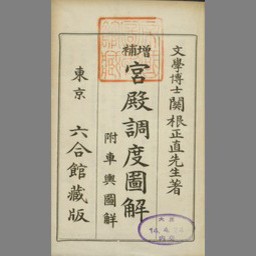 文學博士關根正直先生著
增補
宮殿調度圖解
附車輿圖解
東京 六合館藏版